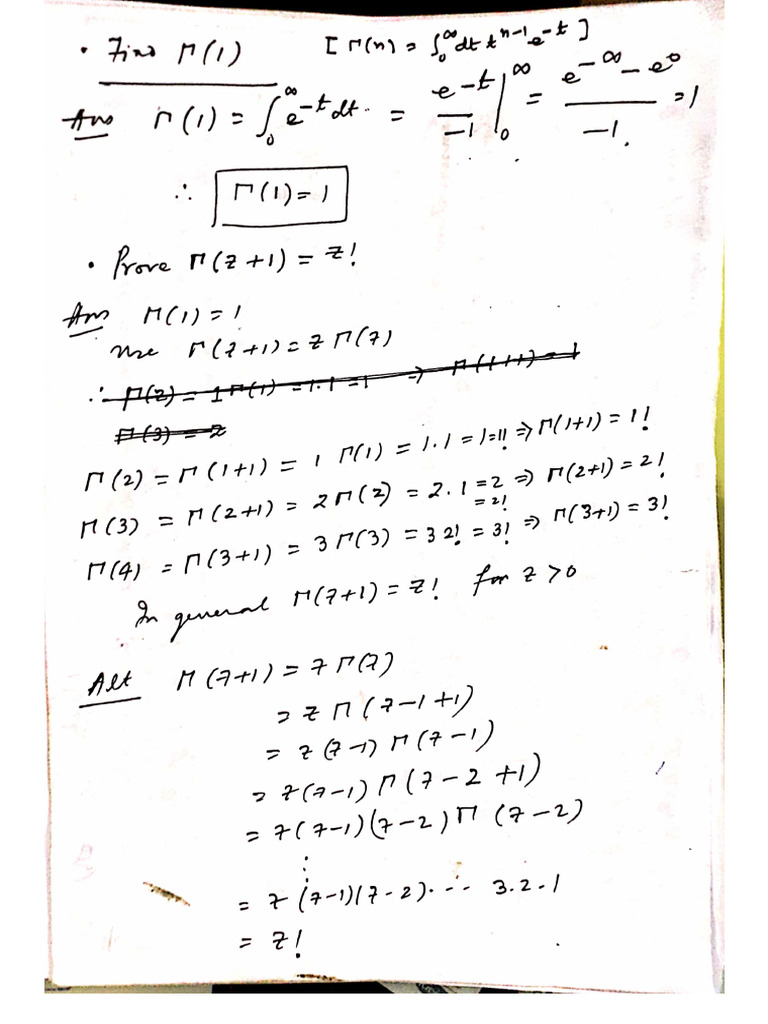 • Find Γ(1) [Γ(n) = ∫₀^∞ dt t^(n-1) e^(-t)]
Ans Γ(1) = ∫₀^∞ e^(-t) dt. = e^(-t)/-1 |₀^∞ = (e^(-∞) - e^0)/-1. = 1
∴ Γ(1) = 1
• Prove Γ(z+1) = z!
Ans Γ(1) = 1
Use Γ(z+1) = z Γ(z)
∴ Γ(2) = 1 Γ(1) = 1.1 = 1 ⇒ Γ(1+1) = 1
Γ(3) = 2
Γ(2) = Γ(1+1) = 1 Γ(1) = 1.1 = 1 = 1! ⇒ Γ(1+1) = 1!
Γ(3) = Γ(2+1) = 2 Γ(2) = 2.1 = 2 = 2! ⇒ Γ(2+1) = 2!
Γ(4) = Γ(3+1) = 3 Γ(3) = 3 2! = 3! ⇒ Γ(3+1) = 3!
In general Γ(z+1) = z! for z > 0
Alt Γ(z+1) = z Γ(z)
= z Γ(z-1+1)
= z (z-1) Γ(z-1)
= z(z-1) Γ(z-2+1)
= z(z-1)(z-2) Γ(z-2)
⋮
= z (z-1)(z-2)···· 3.2.1
= z!